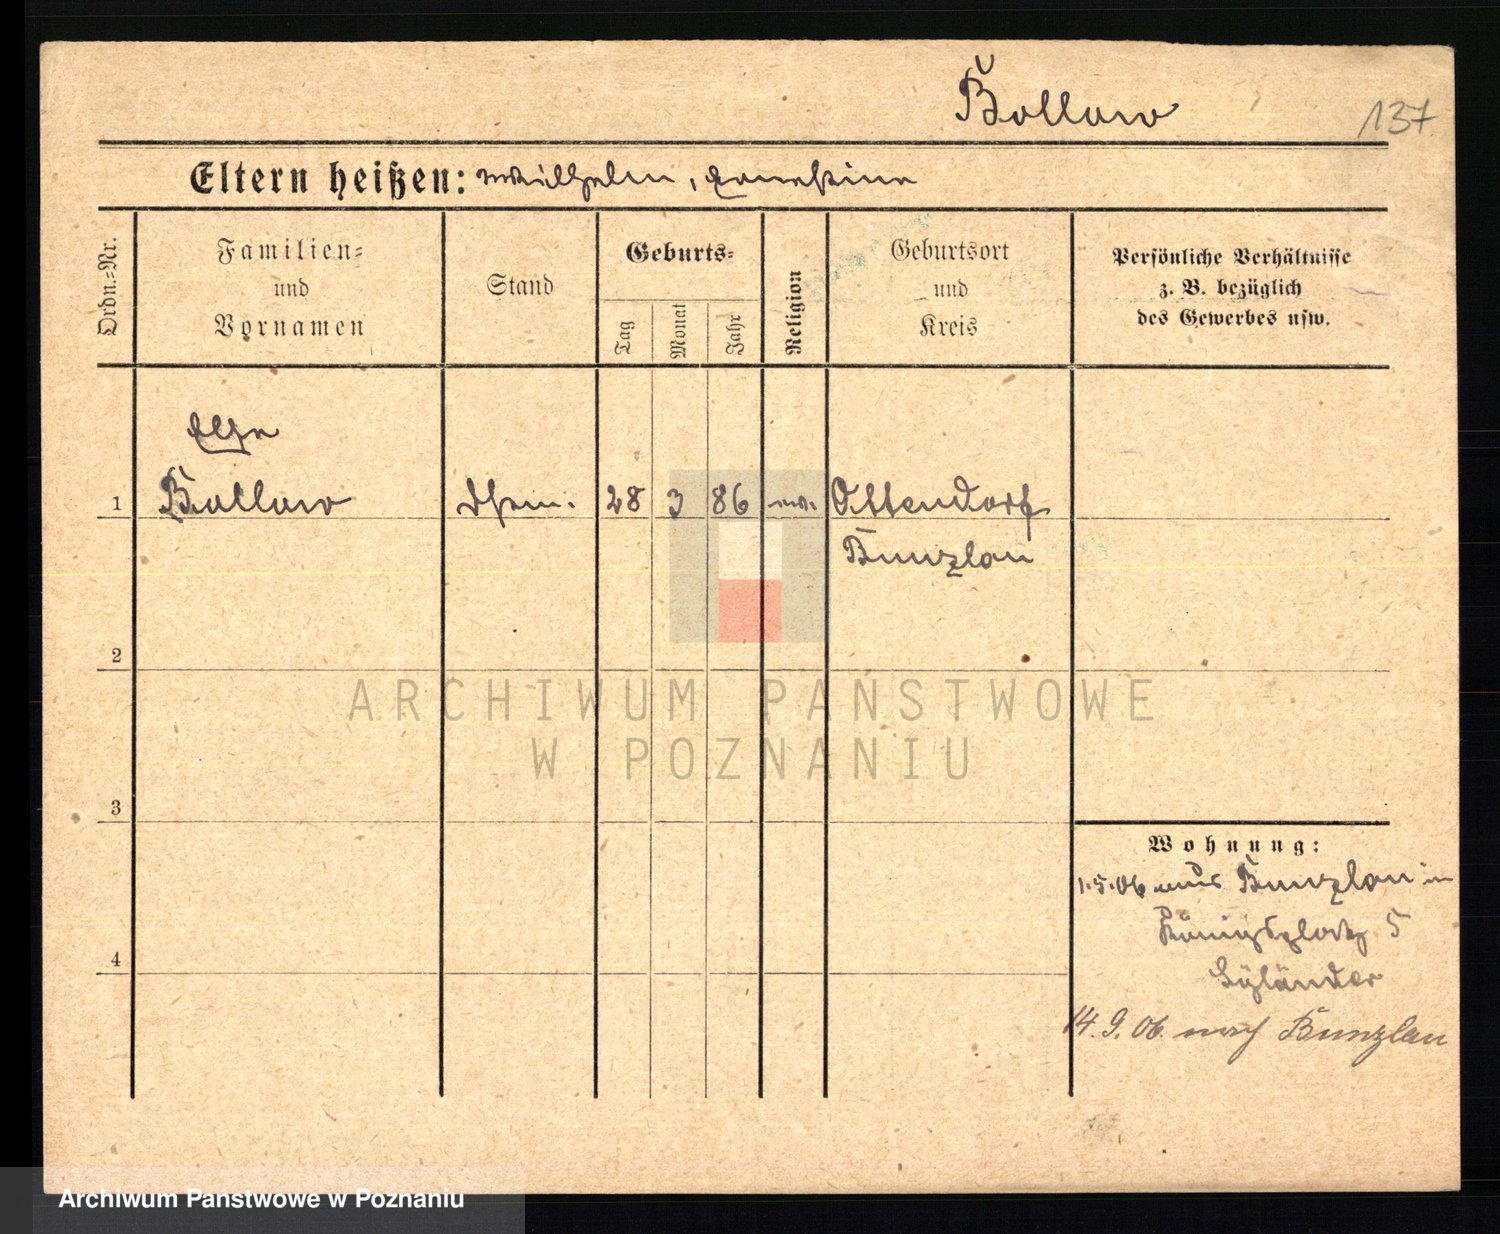 Bollow
137
Eltern heißen: Wilhelm, Ernestine
Ordn.-Nr.
Familien- und Vornamen
Stand
Geburts-
Tag
Monat
Jahr
Religion
Geburtsort und Kreis
Persönliche Verhältnisse
z. B. bezüglich
des Gewerbes usw.
Else
1 Bollow 28 3 86 ev. Ottendorf
Bunzlau
2
ARCHIWUM PAŃSTWOWE
W POZNANIU
3
Wohnung:
1.5.06 aus Bunzlau in
Königsplatz 5
4
14. 9. 06. nach Bunzlau
Archiwum Państwowe w Poznaniu